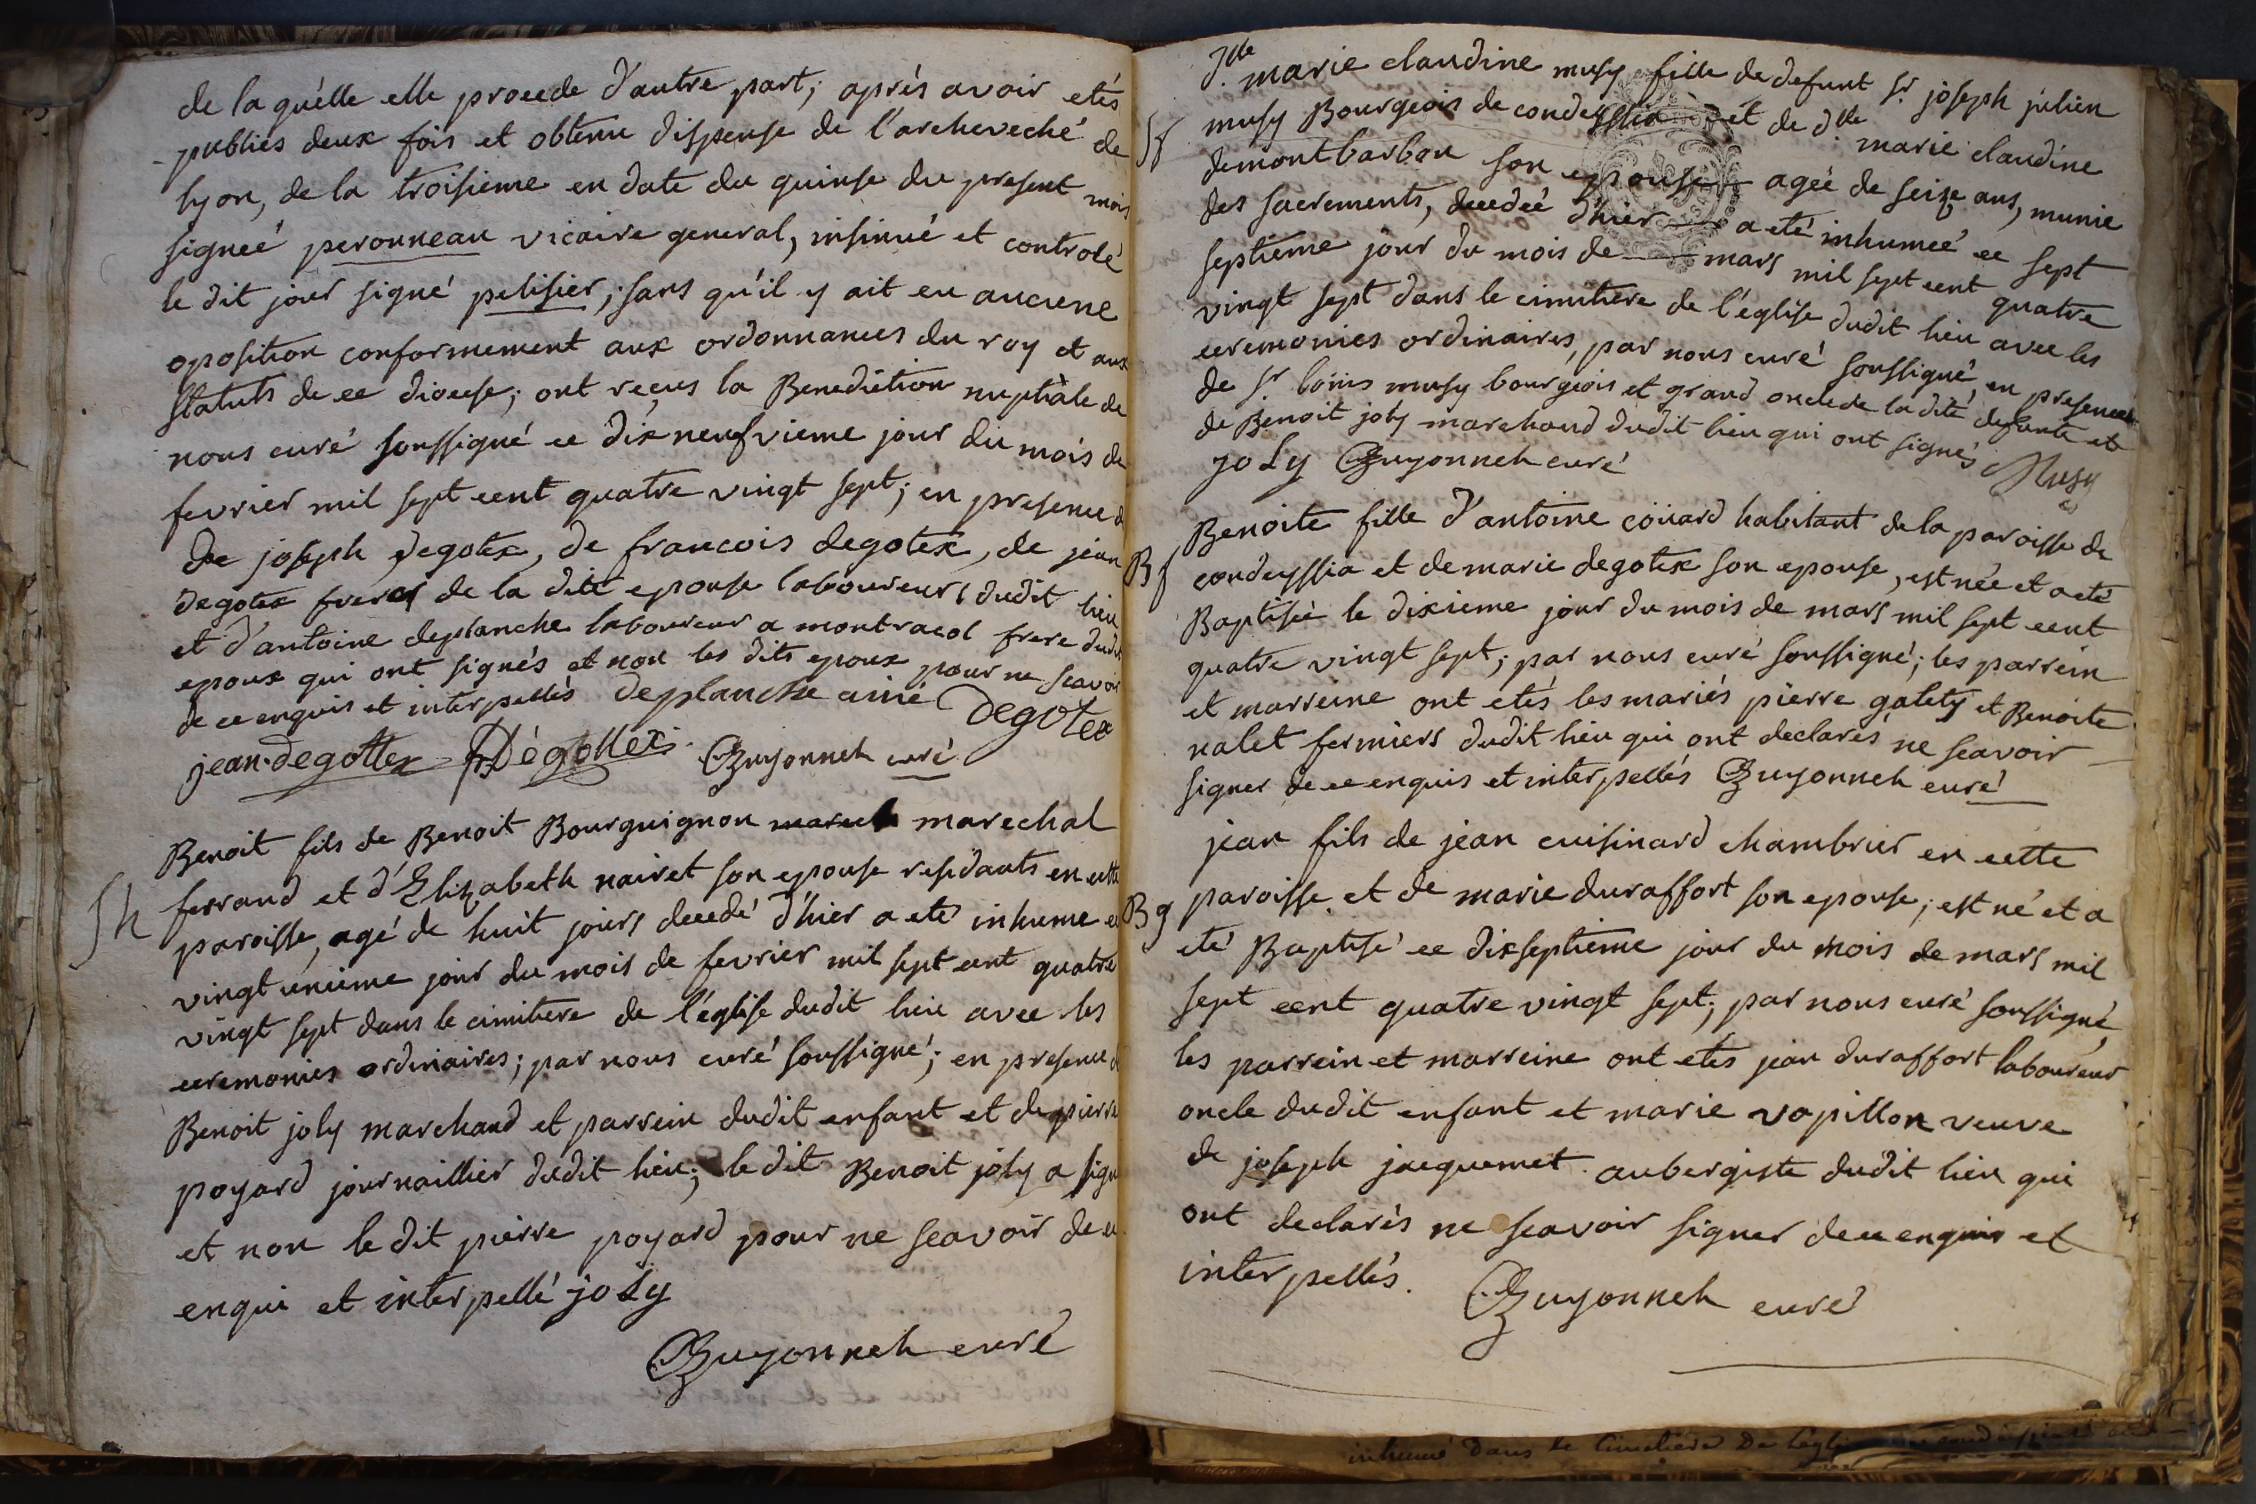 de la quélle elle procede d'autre part; aprés avoir etés
publiés deux fois et obtenu dispense de l'archeveché de
lyon, de la troisieme en date du quinse du present mois
signeé peronneau vicaire general, insinué et controlé
le dit jour signé pelisier; sans qu'il y ait eu aucune
oposition conformement aux ordonnances du roy et aux
statuts de ce diocese; ont reçus la Benediction nuptiale de
nous curé soussigné ce dix neufvieme jour du mois de
fevrier mil sept cent quatre vingt sept; en presence
de joseph degotex, de francois degotex, de jean
degotex freres de la dite epouse laboureurs dudit lieu
et d'antoine deplanche laboureur a montracol frere dudit
epoux qui ont signés et non les dits epoux pour ne scavoir
de ce enquis et interpellés deplanche ainé Degotex
jean degottex Dégottex Guyonneh curé
Benoit fils de Benoit Bourguignon marech marechal
Sh ferrand et d'Elizabeth nairet son epouse residants en cette
paroisse, agé de huit jours decedé d'hier a eté inhume ce
vingt unieme jour du mois de fevrier mil sept cent quatre
vingt sept dans le cimitiere de l'église dudit lieu avec les
ceremonies ordinaires; par nous curé soussigné; en presence
Benoit joly marchand et parrein dudit enfant et de pierre
poyard journaillier dudit lieu; le dit Benoit joly a signé
et non le dit pierre poyard pour ne scavoir de ce
enqui et interpellé joLy
Guyonneh curé
Dlle marie claudine musy fille de defunt Sr joseph julien
Sf musy Bourgeois de condeyssia et de dlle marie claudine
demontbarbon son epouse agée de seize ans, munie
des sacrements, decedeé d'hier a eté inhumeé ce sept
septieme jour du mois de mars mil sept cent quatre
vingt sept dans le cimitiere de l'église dudit lieu avec les
ceremonies ordinaires, par nous curé soussigné, en presence
de Sr loüis musy bourgeois et grand oncle de la dite defunte et
de Benoit joly marchand dudit lieu qui ont signés Musy
joLy Guyonneh curé
Benoite fille d'antoine coüard habitant de la paroisse de
Bf condeyssia et de marie degotex son epouse, est née et a eté
Baptiseé le dixieme jour du mois de mars mil sept cent
quatre vingt sept; par nous curé soussigné; les parrein
et marreine ont etés les mariés pierre galety et Benoite
nalet fermiers dudit lieu qui ont declarés ne scavoir
signer de ce enquis et interpellés Guyonneh curé
jean fils de jean cuisinard chambrier en cette
Bg paroisse et de marie duraffort son epouse; est né et a
eté Baptisé ce dixseptieme jour du mois de mars mil
sept cent quatre vingt sept; par nous curé soussigné,
les parrein et marreine ont etés jean duraffort laboureur
oncle dudit enfant et marie vapillon veuve
de joseph jacquemet aubergiste dudit lieu qui
ont declarés ne scavoir signer de ce enquis et
interpellés. Guyonneh curé
inhumé dans le Cimetiere De l'église